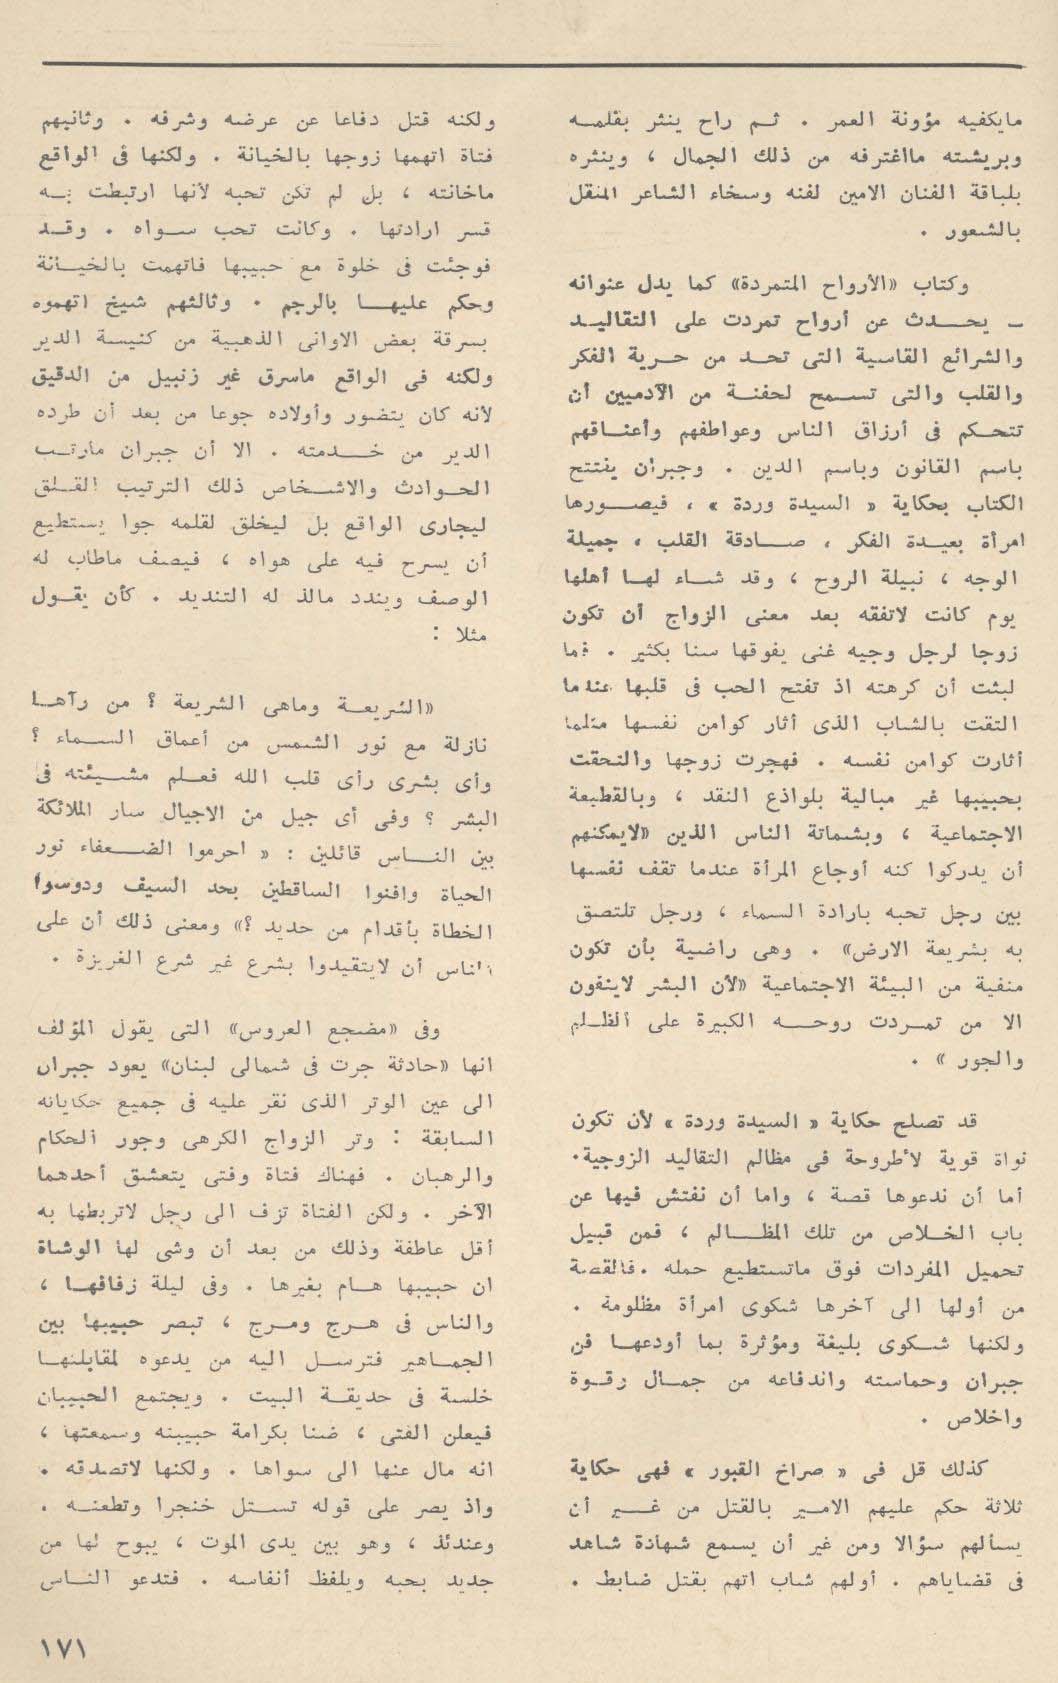 مايكفيه مؤونة العمر . ثم راح ينثر بقلمه
وبريشته مااغترفه من ذلك الجمال ، وينثره
بلباقة الفنان الامين لفنه وسخاء الشاعر المثقل
بالشعور .
وكتاب «الأرواح المتمردة» كما يدل عنوانه
ـ يحدث عن أرواح تمردت على التقاليد
والشرائع القاسية التى تحد من حرية الفكر
والقلب والتى تسمح لحفنة من الآدميين أن
تتحكم فى أرزاق الناس وعواطفهم وأعناقهم
باسم القانون وباسم الدين . وجبران يفتتح
الكتاب بحكاية « السيدة وردة » ، فيصورها
امرأة بعيدة الفكر ، صادقة القلب ، جميلة
الوجه ، نبيلة الروح ، وقد شاء لها أهلها
يوم كانت لاتفقه بعد معنى الزواج أن تكون
زوجا لرجل وجيه غنى يفوقها سنا بكثير . فما
لبثت أن كرهته اذ تفتح الحب فى قلبها عندما
التقت بالشاب الذى أثار كوامن نفسها مثلما
أثارت كوامن نفسه . فهجرت زوجها والتحقت
بحبيبها غير مبالية بلواذع النقد ، وبالقطيعة
الاجتماعية ، وبشماتة الناس الذين «لايمكنهم
أن يدركوا كنه أوجاع المرأة عندما تقف نفسها
بين رجل تحبه بارادة السماء ، ورجل تلتصق
به بشريعة الارض» . وهى راضية بأن تكون
منفية من البيئة الاجتماعية «لأن البشر لاينفون
الا من تمردت روحه الكبيرة على الظلم
والجور » .
قد تصلح حكاية « السيدة وردة » لأن تكون
نواة قوية لأطروحة فى مظالم التقاليد الزوجية.
أما أن ندعوها قصة ، واما أن نفتش فيها عن
باب الخلاص من تلك المظالم ، فمن قبيل
تحميل المفردات فوق ماتستطيع حمله .فالقصة
من أولها الى آخرها شكوى امرأة مظلومة .
ولكنها شكوى بليغة ومؤثرة بما أودعها فن
جبران وحماسته واندفاعه من جمال رقوة
واخلاص .
كذلك قل فى « صراخ القبور » فهى حكاية
ثلاثة حكم عليهم الامير بالقتل من غير أن
يسألهم سؤالا ومن غير أن يسمع شهادة شاهد
فى قضاياهم . أولهم شاب اتهم بقتل ضابط .
ولكنه قتل دفاعا عن عرضه وشرفه . وثانيهم
فتاة اتهمها زوجها بالخيانة . ولكنها فى الواقع
ماخانته ، بل لم تكن تحبه لأنها ارتبطت به
قسر ارادتها . وكانت تحب سواه . وقد
فوجئت فى خلوة مع حبيبها فاتهمت بالخيانة
وحكم عليها بالرجم . وثالثهم شيخ اتهموه
بسرقة بعض الاوانى الذهبية من كنيسة الدير
ولكنه فى الواقع ماسرق غير زنبيل من الدقيق
لأنه كان يتضور وأولاده جوعا من بعد أن طرده
الدير من خدمته . الا أن جبران مارتب
الحوادث والاشخاص ذلك الترتيب القلق
ليجارى الواقع بل ليخلق لقلمه جوا يستطيع
أن يسرح فيه على هواه ، فيصف ماطاب له
الوصف ويندد مالذ له التنديد . كأن يقول
مثلا :
«الشريعة وماهى الشريعة ؟ من رآها
نازلة مع نور الشمس من أعماق السماء ؟
وأى بشرى رأى قلب الله فعلم مشيئته فى
البشر ؟ وفى أى جيل من الاجيال سار الملائكة
بين الناس قائلين : « احرموا الضعفاء نور
الحياة وافنوا الساقطين بحد السيف ودوسوا
الخطاة بأقدام من حديد ؟» ومعنى ذلك أن على
الناس أن لايتقيدوا بشرع غير شرع الغريزة .
وفى «مضجع العروس» التى يقول المؤلف
انها «حادثة جرت فى شمالى لبنان» يعود جبران
الى عين الوتر الذى نقر عليه فى جميع حكاياته
السابقة : وتر الزواج الكرهى وجور الحكام
والرهبان . فهناك فتاة وفتى يتعشق أحدهما
الآخر . ولكن الفتاة تزف الى رجل لاتربطها به
أقل عاطفة وذلك من بعد أن وشى لها الوشاة
ان حبيبها هام بغيرها . وفى ليلة زفافها ،
والناس فى هرج ومرج ، تبصر حبيبها بين
الجماهير فترسل اليه من يدعوه لمقابلتها
خلسة فى حديقة البيت . ويجتمع الحبيبان
فيعلن الفتى ، ضنا بكرامة حبيبته وسمعتها ،
انه مال عنها الى سواها . ولكنها لاتصدقه .
واذ يصر على قوله تستل خنجرا وتطعنه .
وعندئذ ، وهو بين يدى الموت ، يبوح لها من
جديد بحبه ويلفظ أنفاسه . فتدعو الناس
١٧١